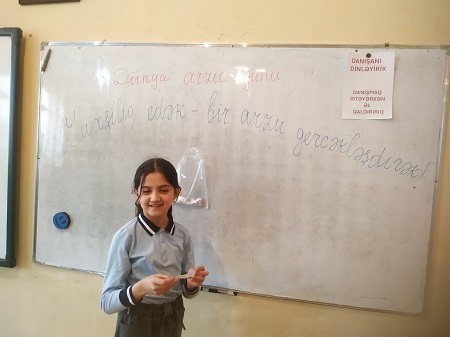 Dünya arzu günü
Yaxşılıq edək - bir arzu gerçəkləşdirək!
DANIŞANI
DİNLƏYİRİK
DANIŞMAQ
İSTƏYƏRKƏN
ƏL
QALDIRIRIQ